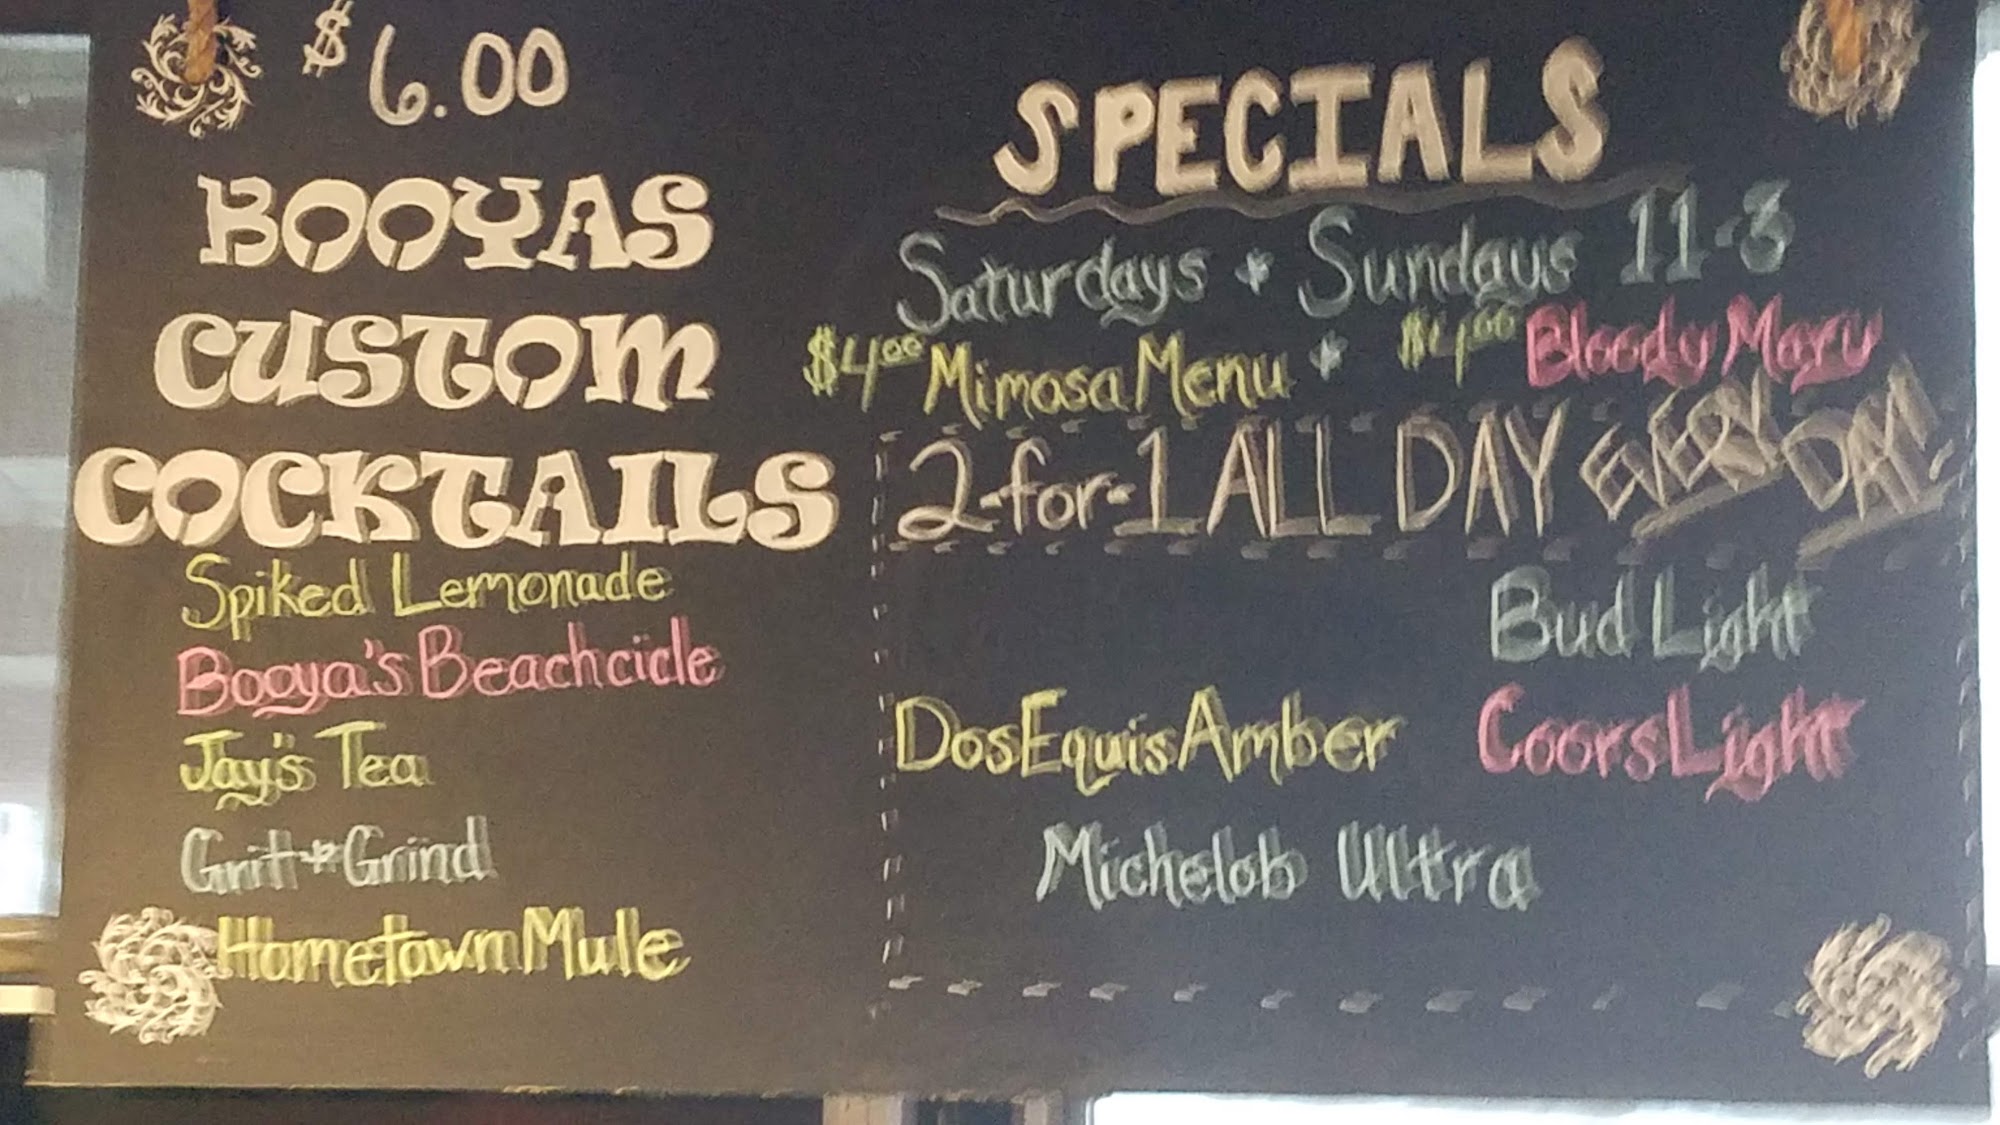 $6.00
BOOYAS
CUSTOM
COCKTAILS
Spiked Lemonade
Booya's Beachcicle
Jay's Tea
Grit & Grind
Hometown Mule
SPECIALS
Saturdays & Sundays 11-3
$4.00 Mimosa Menu & $4.00 Bloody Mary
2-for-1 ALL DAY EVERY DAY!
Bud Light
Dos Equis Amber Coors Light
Michelob Ultra